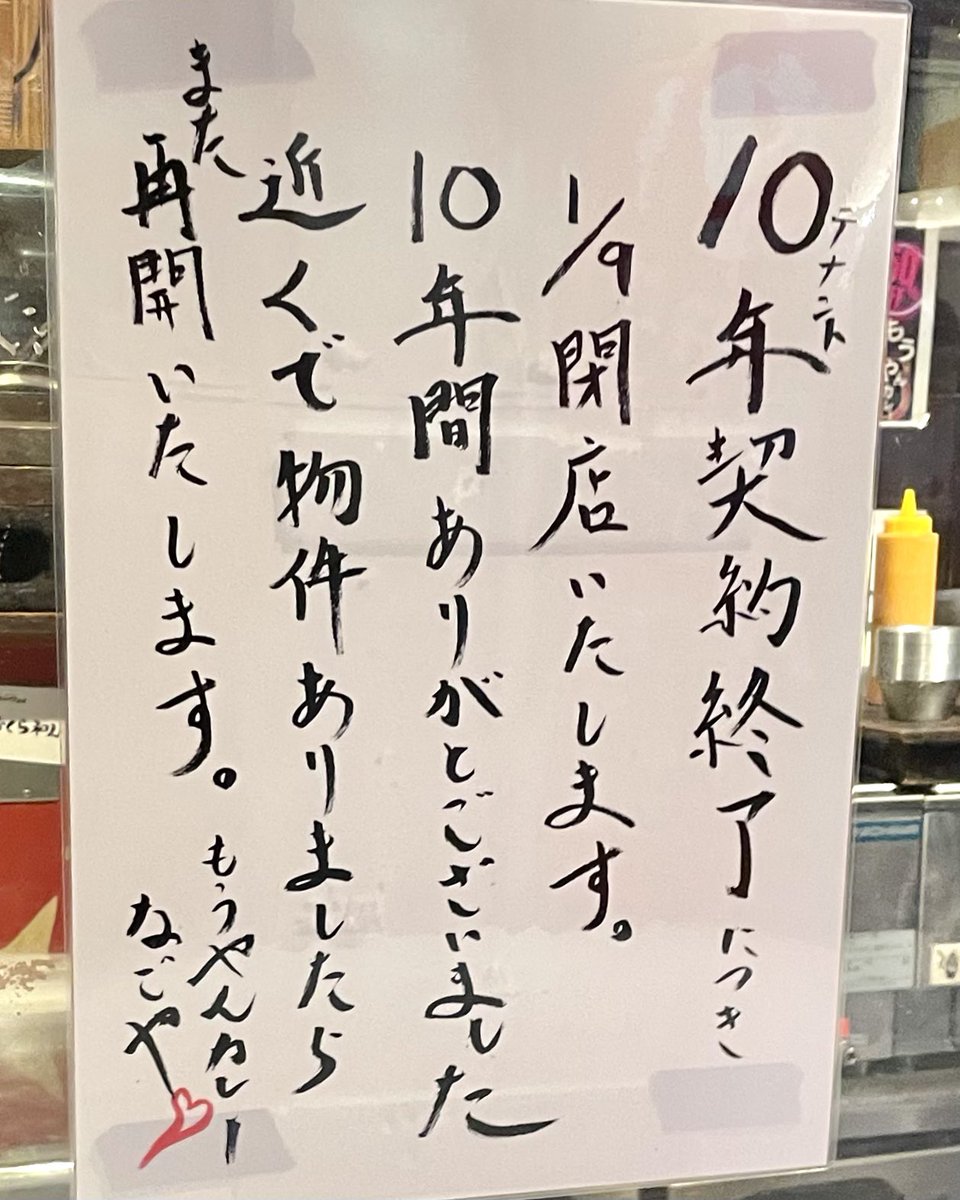 10年契約終了につき
テナント
1/9閉店いたします。
10年間ありがとございました
近くで物件ありましたら
また
再開いたします。
もうやんカレー
なごや